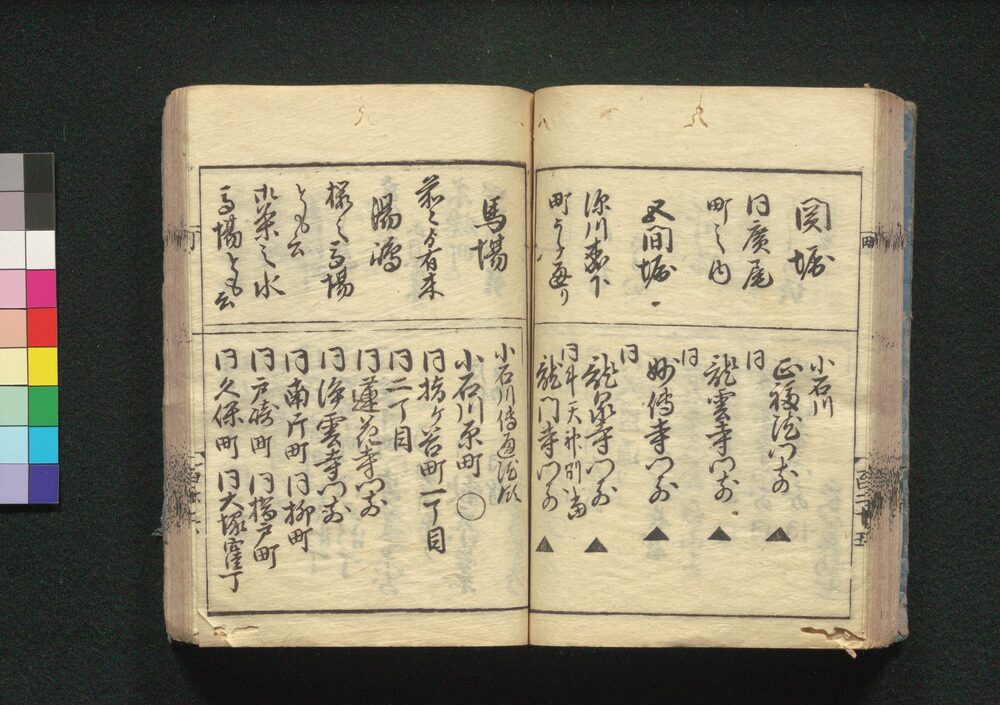 関堀
同廣尾
町之内
五間堀
深川森下
町うら通り
小石川
正福院門前▲
同
龍雲寺門前▲
同
妙傳寺門前▲
同
龍泉寺門前▲
同牛天神別当
龍門寺門前▲
馬場
湯嶋
桜之馬場
とも云
御茶之水
馬場とも云
小石川傳通院領
小石川原町○
同指ヶ谷町一丁目
同二丁目
同蓮花寺門前
同浄雲寺門前
同南片町 同柳町
同戸崎町 同橋戸町
同久保町 同大塚窪丁